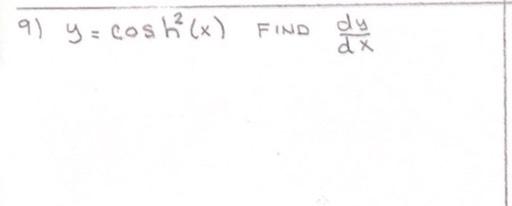 9) y = cosh²(x) FIND dy/dx